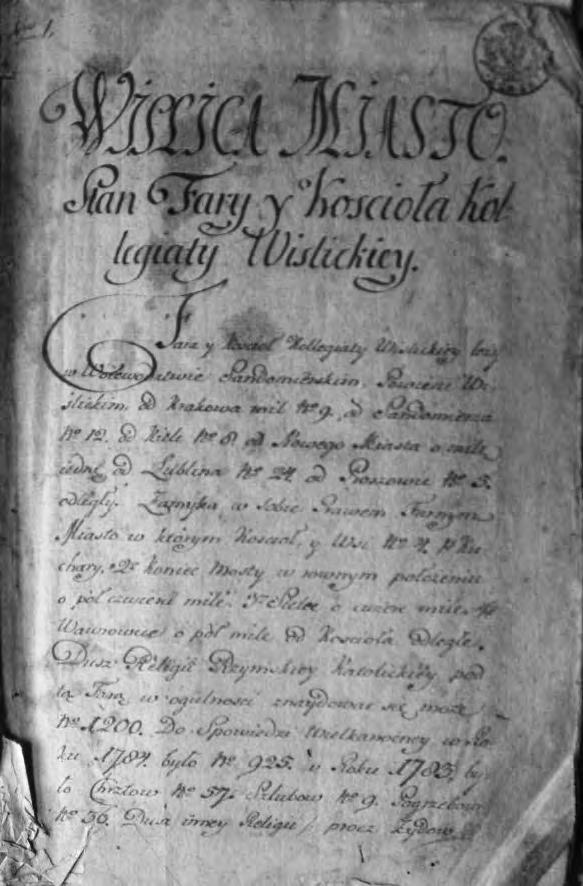 1.
WISLICA MIASTO.
Stan Fary y Koscioła Kol-
legiaty Wislickiey.
Fara y Kosciol Kollegiaty Wislickiey leży
w Woiewodztwie Sandomirskim, Powiecie Wi-
ślickim, od Krakowa mil Nº 9, od Sandomierza
Nº 12. od Kielc Nº 8. od Nowego Miasta o mile
iednę od Lublina Nº 24. od Proszowic Nº 5.
odległy. Zamyka w sobie Prawem Farnym
Miasto w którym Kosciol, y Wsi Nº 4. 1º Ku-
chary. 2º Koniec Mosty w rownym położeniu
o pół cwierci mile. 3º Sielec o cwierc mile 4º
Wawrowice o pół mile od Kosciola odległe.
Dusz Religii Rzymskiey Katolickiey pod
tą Farą w ogulnosci znaydować się może
Nº 1200. Do Spowiedzi Wielkanocney w Ro-
ku 1784. było Nº 925. w Roku 1783. by-
ło Chrztow Nº 57. Szlubow Nº 9. Pogrzebow
Nº 56. Dusz inney Religii / procz Żydow